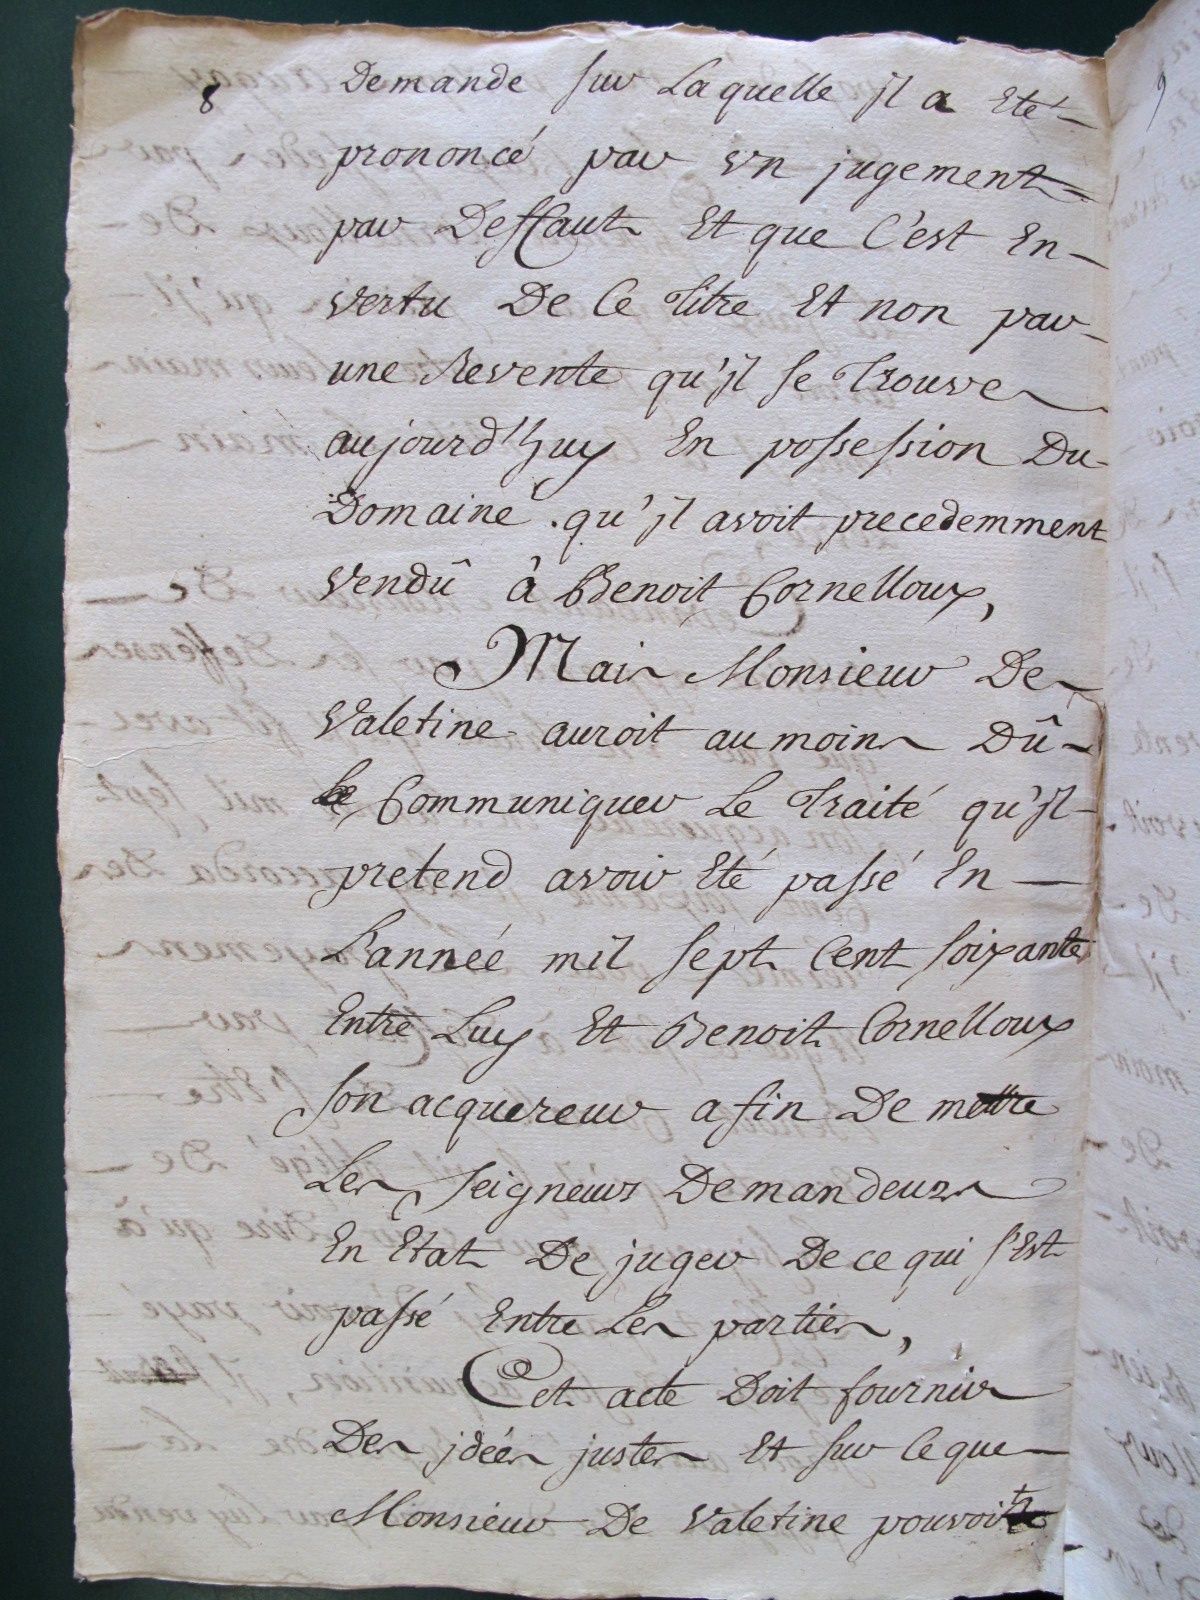 8
Demande sur Laquelle jl a Eté
prononcé par un jugement
par Deffaut Et que C'est En
vertu De Ce titre Et non par
une Revente qu'jl se Trouve
aujourd'huy En possession Du
Domaine . qu'jl avoit precedemment
vendû à Benoit Cornelloux,
Mais Monsieur De
Valetine auroit au moins Dû
Communiquer Le Traité qu'jl
pretend avoir Eté passé En
L'année mil sept Cent soixante
Entre Luy Et Benoit Cornelloux
son acquereur afin De mettre
Les seigneurs Demandeurs
En Etat De juger De ce qui s'Est
passé Entre Les parties,
Cet acte Doit fournir
Des jdées justes Et sur Ce que
Monsieur De Valetine pouvoit
9